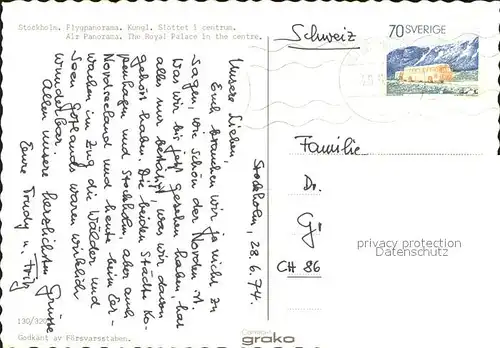 Stockholm. Flygpanorama. Kungl. Slottet i centrum.
Air Panorama. The Royal Palace in the centre.
Schweiz
70 SVERIGE
Stockholm, 28.6.74.
Unsere Lieben,
Euch brauchen wir ja nicht zu
sagen, wie schön der Norden ist.
Was wir bis jetzt gesehen haben, hat
alles nur bestätigt, was wir davon
gehört haben. Die beiden Städte Ko-
penhagen und Stockholm, aber auch
Nordseeland und heute beim
weilen im Zug die Wälder und
Seen Götlands waren wirklich
wunderbar.
Allen unsere herzlichsten Grüsse
Eure Trudy u. Fritz
Familie
Dr.
privacy protection
Datenschutz
CH 86
130/320
Godkänt av Försvarsstaben.
grako